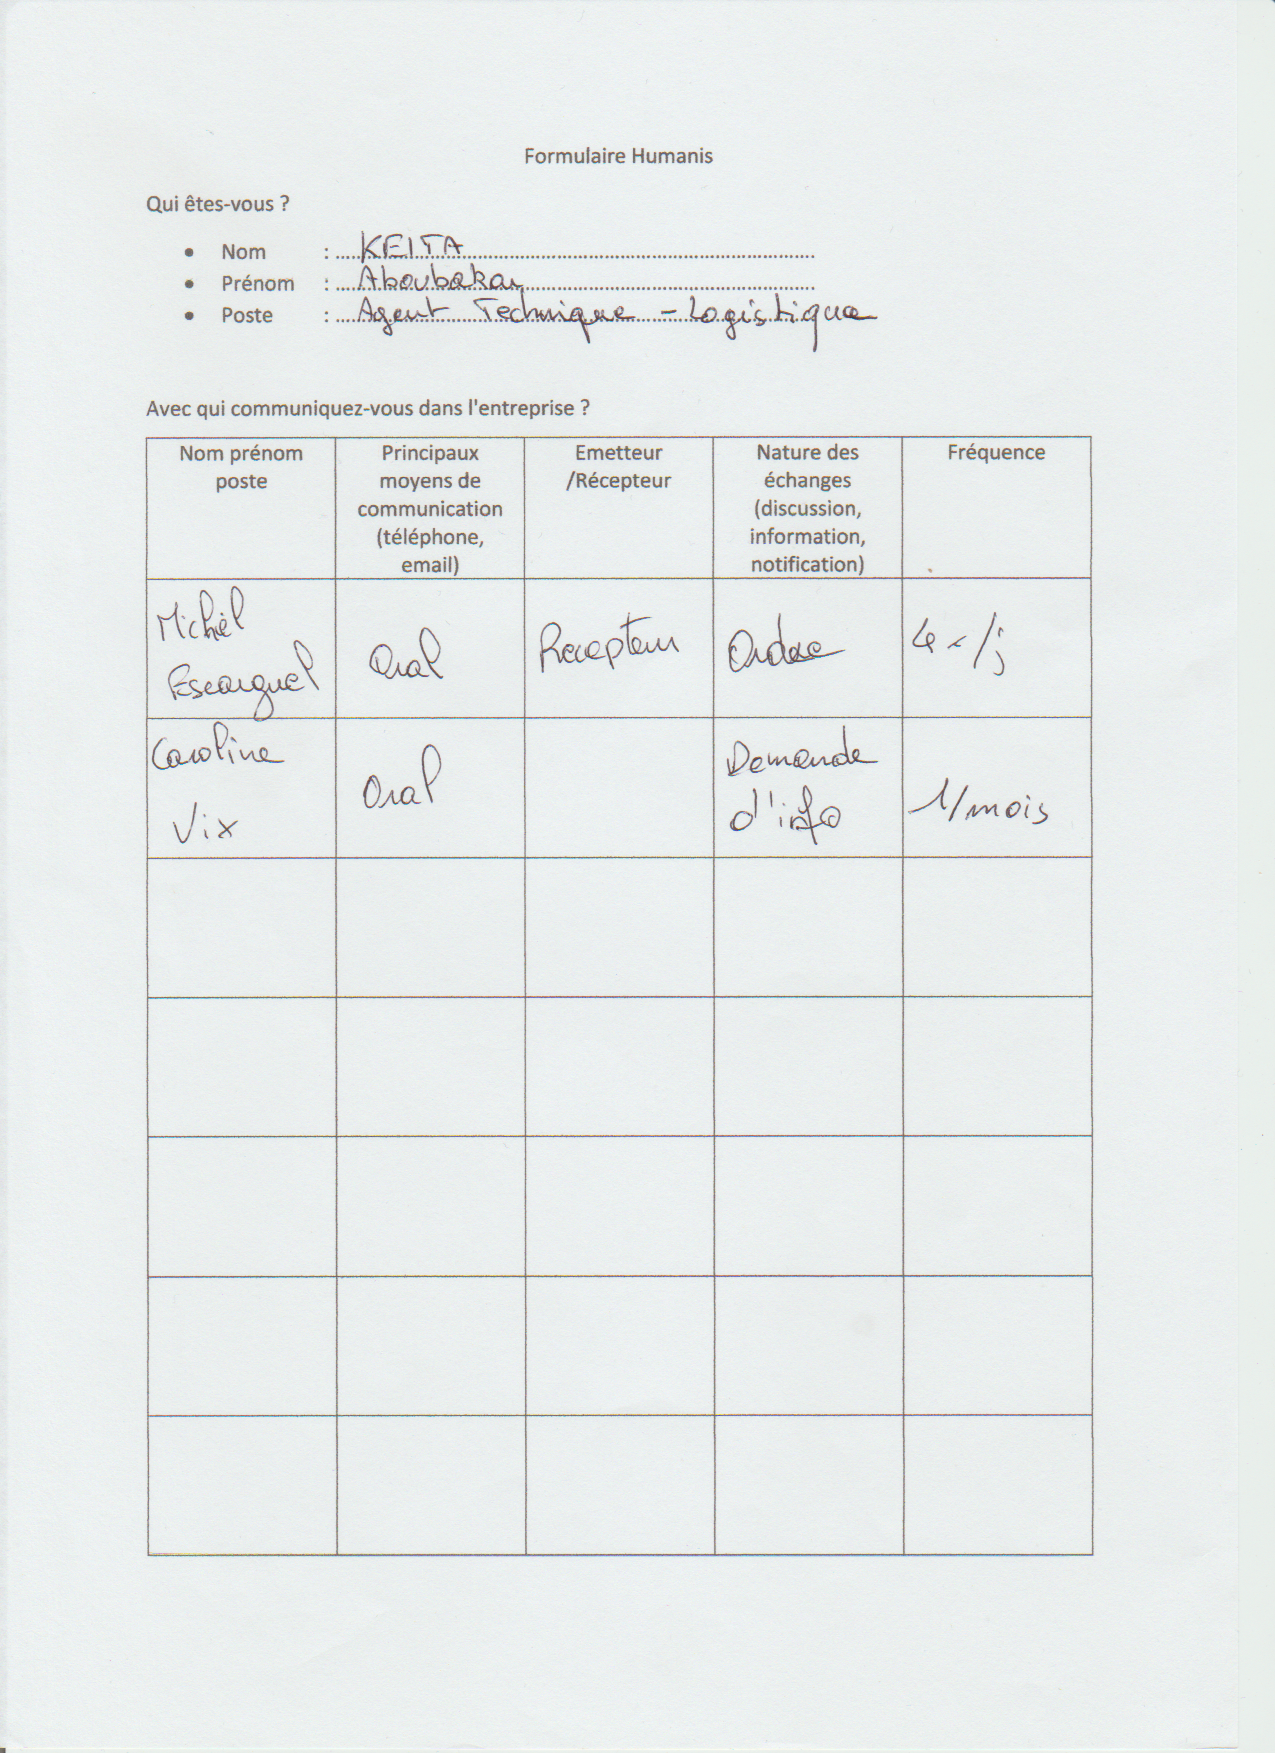 Formulaire Humanis
Qui êtes-vous ?
• Nom : KEITA
• Prénom : Aboubakar
• Poste : Agent Technique - Logistique
Avec qui communiquez-vous dans l'entreprise ?
Nom prénom
poste
Principaux
moyens de
communication
(téléphone,
email)
Emetteur
/Récepteur
Nature des
échanges
(discussion,
information,
notification)
Fréquence
Michel
Escarguel
Oral
Recepteur
Ordre
4 x /j
Caroline
Vix
Oral
Demande
d'info
1/mois